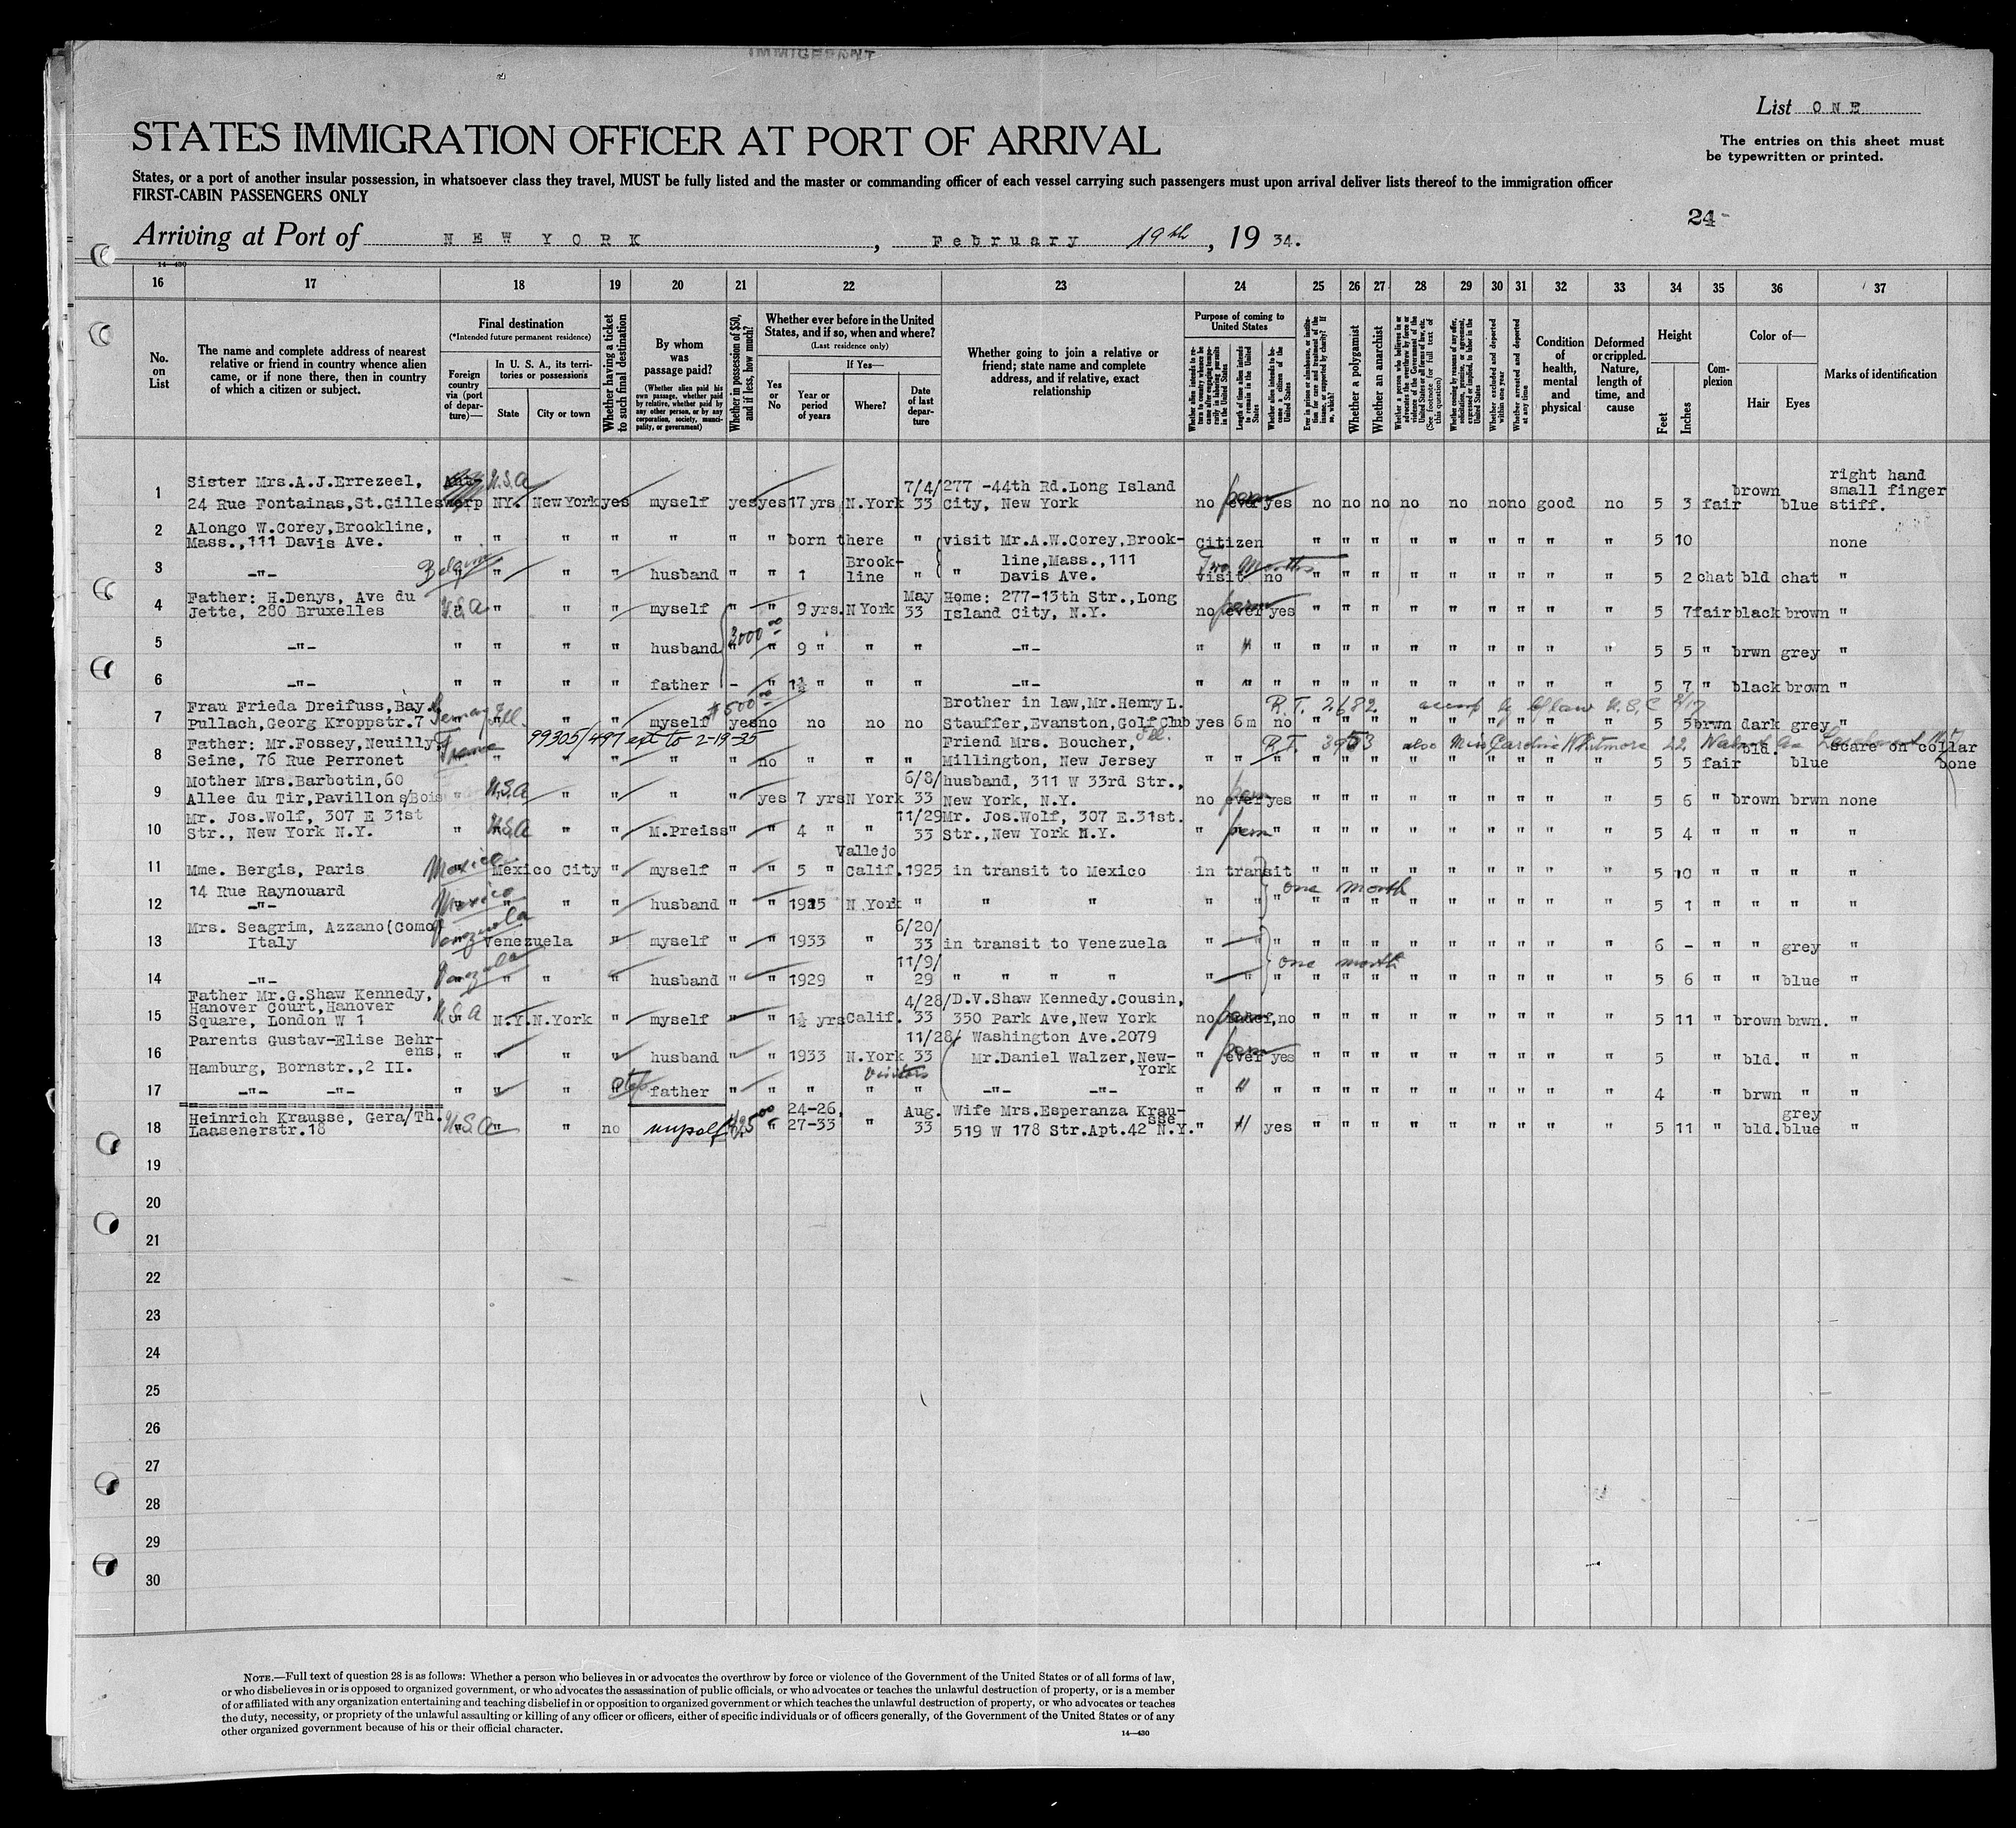 IMMIGRANT
List ONE
STATES IMMIGRATION OFFICER AT PORT OF ARRIVAL
The entries on this sheet must
be typewritten or printed.
States, or a port of another insular possession, in whatsoever class they travel, MUST be fully listed and the master or commanding officer of each vessel carrying such passengers must upon arrival deliver lists thereof to the immigration officer
FIRST-CABIN PASSENGERS ONLY
24-
Arriving at Port of NEW YORK, February 19th, 1934.
14-430
16 17 18 19 20 21 22 23 24 25 26 27 28 29 30 31 32 33 34 35 36 37
No. on List
The name and complete address of nearest relative or friend in country whence alien came, or if none there, then in country of which a citizen or subject.
Final destination
(*Intended future permanent residence)
Foreign country via (port of departure)—
In U. S. A., its territories or possessions
State
City or town
Whether having a ticket to such final destination
By whom was passage paid?
(Whether alien paid his own passage, whether paid by relative, whether paid by any other person, or by any corporation, society, municipality, or government)
Whether in possession of $50, and if less, how much?
Whether ever before in the United States, and if so, when and where?
(Last residence only)
Yes or No
If Yes—
Year or period of years
Where?
Date of last departure
Whether going to join a relative or friend; state name and complete address, and if relative, exact relationship
Purpose of coming to United States
Length of time alien intends to remain in the United States
Whether alien intends to become a citizen of the United States
Whether a polygamist
Whether an anarchist
Whether excluded and deported within one year
Whether arrested and deported at any time
Condition of health, mental and physical
Deformed or crippled. Nature, length of time, and cause
Height
Feet
Inches
Complexion
Color of—
Hair
Eyes
Marks of identification
1 Sister Mrs.A.J.Errezeel, 24 Rue Fontainas,St.Gilles U.S.A NY. New York yes myself yes yes 17 yrs N.York 7/4/33 277 -44th Rd.Long Island City, New York no perm ever yes no no no no no no no good no 5 3 fair brown blue right hand small finger stiff.
2 Alongo W.Corey,Brookline, Mass.,111 Davis Ave. " " " " " " " born there " visit Mr.A.W.Corey,Brook- Citizen " " " " " " " " " 5 10 none
3 -"- Belgium " " " " husband " " 1 Brook-line " " line,Mass.,111 Davis Ave. Two Months visit no " " " " " " " " " 5 2 chat bld chat "
4 Father: H.Denys, Ave du Jette, 280 Bruxelles U.S.A " " " myself " " 9 yrs. N York May 33 Home: 277-13th Str.,Long Island City, N.Y. no perm ever yes " " " " " " " " " 5 7 fair black brown "
5 -"- " " " " husband 3000.00 " " 9 " " " -"- " " " " " " " " " " " " " 5 5 " brwn grey "
6 -"- " " " " father - " 1½ " " " -"- " " " " " " " " " " " " 5 7 " black brown "
7 Frau Frieda Dreifuss,Bay. Pullach,Georg Kroppstr.7 Germany Ill. " " myself $500.00 yes no no no no Brother in law,Mr.Henry L. Stauffer,Evanston,Golf Club Ill. yes 6m no R.T. 2682 " " " " " " " " " 5 5 brwn dark grey "
99305/497 ext to 2-19-35
8 Father: Mr.Fossey,Neuilly, Seine, 76 Rue Perronet France " " " " " no " " " Friend Mrs. Boucher, Millington, New Jersey " " " R.T. 3953 also Miss Caroline Whitmore 22 " " " " " " " " " 5 5 fair bld. blue scare on collar bone
9 Mother Mrs.Barbotin,60 Allee du Tir,Pavillon s/Bois " U.S.A " " " " yes 7 yrs N York 6/8/33 husband, 311 W 33rd Str., New York, N.Y. no perm ever yes " " " " " " " " " 5 6 " brown brwn none
10 Mr. Jos.Wolf, 307 E 31st Str., New York N.Y. " U.S.A " " M.Preiss " " 4 " " 11/29 33 Mr. Jos.Wolf, 307 E.31st. Str.,New York N.Y. " perm " " " " " " " " " " 5 4 " " " "
11 Mme. Bergis, Paris Mexico Mexico City " myself " " 5 " Vallejo Calif. 1925 in transit to Mexico in transit " " " " " " " " " 5 10 " " " "
12 14 Rue Raynouard -"- Mexico " " " husband " " 1925 N.York " " " " " one month " " " " " " " " " 5 1 " " " "
13 Mrs. Seagrim, Azzano(Como) Italy Venezuela Venezuela " myself " " 1933 " 6/20/33 in transit to Venezuela " " " " " " " " " " " " 6 - " " grey "
14 -"- Venezuela " " " husband " " 1929 " 11/9/29 " " " " " " one month " " " " " " " " " 5 6 " " blue "
15 Father Mr.G.Shaw Kennedy, Hanover Court,Hanover Square, London W 1 U.S.A N.Y. N.York " myself " 1½ yrs Calif. 4/28/33 D.V.Shaw Kennedy.Cousin, 350 Park Ave,New York no perm indef, no " " " " " " " " " 5 11 " brown brwn. "
16 Parents Gustav-Elise Behrens, Hamburg, Bornstr.,2 II. " " " husband " " 1933 N.York 11/28/33 Washington Ave.2079 Mr.Daniel Walzer,New-York " perm ever yes " " " " " " " " " 5 " bld. " "
17 -"- -"- " " " Step father " " " " " -"- -"- " " " " " " " " " " " " 4 " brwn " "
18 Heinrich Krausse, Gera/Th. Laasenerstr.18 U.S.A " " no myself " 24-26, 27-33 " Aug. 33 Wife Mrs.Esperanza Krausse 519 W 178 Str.Apt.42 N.Y. " " yes " " " " " " " " " 5 11 " bld. grey blue "
19
20
21
22
23
24
25
26
27
28
29
30
NOTE.—Full text of question 28 is as follows: Whether a person who believes in or advocates the overthrow by force or violence of the Government of the United States or of all forms of law,
or who disbelieves in or is opposed to organized government, or who advocates the assassination of public officials, or who advocates or teaches the unlawful destruction of property, or is a member
of or affiliated with any organization entertaining and teaching disbelief in or opposition to organized government or which teaches the unlawful destruction of property, or who advocates or teaches
the duty, necessity, or propriety of the unlawful assaulting or killing of any officer or officers, either of specific individuals or of officers generally, of the Government of the United States or of any
other organized government because of his or their official character.
14—430